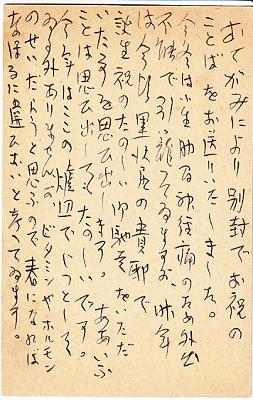 おてがみにより別封でお祝の
ことばをお送りいたしました。
今冬は小生肋間神経痛のため外出
不能で引い籠てゐますが、昨年
は今頃里状居の貴邸で
誕生祝のたのしい御馳走をいただ
いたことを思ひ出します。ああいふ
ことは思ひ出してもたのしいです。
今年はここの爐辺でじつとして
ゐる外ありませんが ビタミンやホルモン
のせいだらうと思ふので春になれば
なほるに違ひないと考へてゐます。